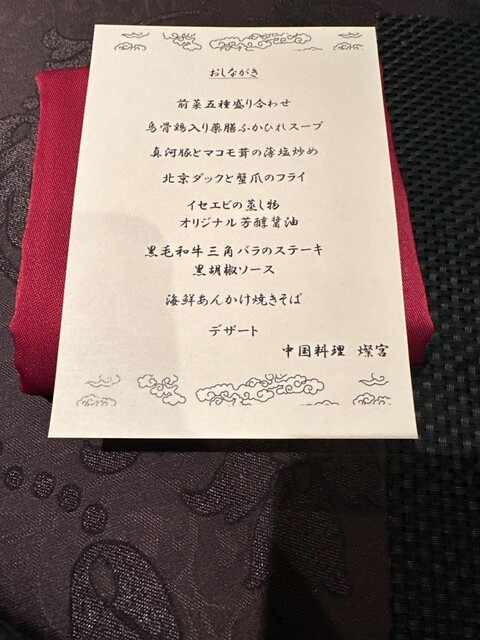 おしながき
前菜五種盛り合わせ
烏骨鶏入り薬膳ふかひれスープ
真河豚とマコモ茸の薄塩炒め
北京ダックと蟹爪のフライ
イセエビの蒸し物
オリジナル芳醇醤油
黒毛和牛三角バラのステーキ
黒胡椒ソース
海鮮あんかけ焼きそば
デザート
中国料理 燦宮